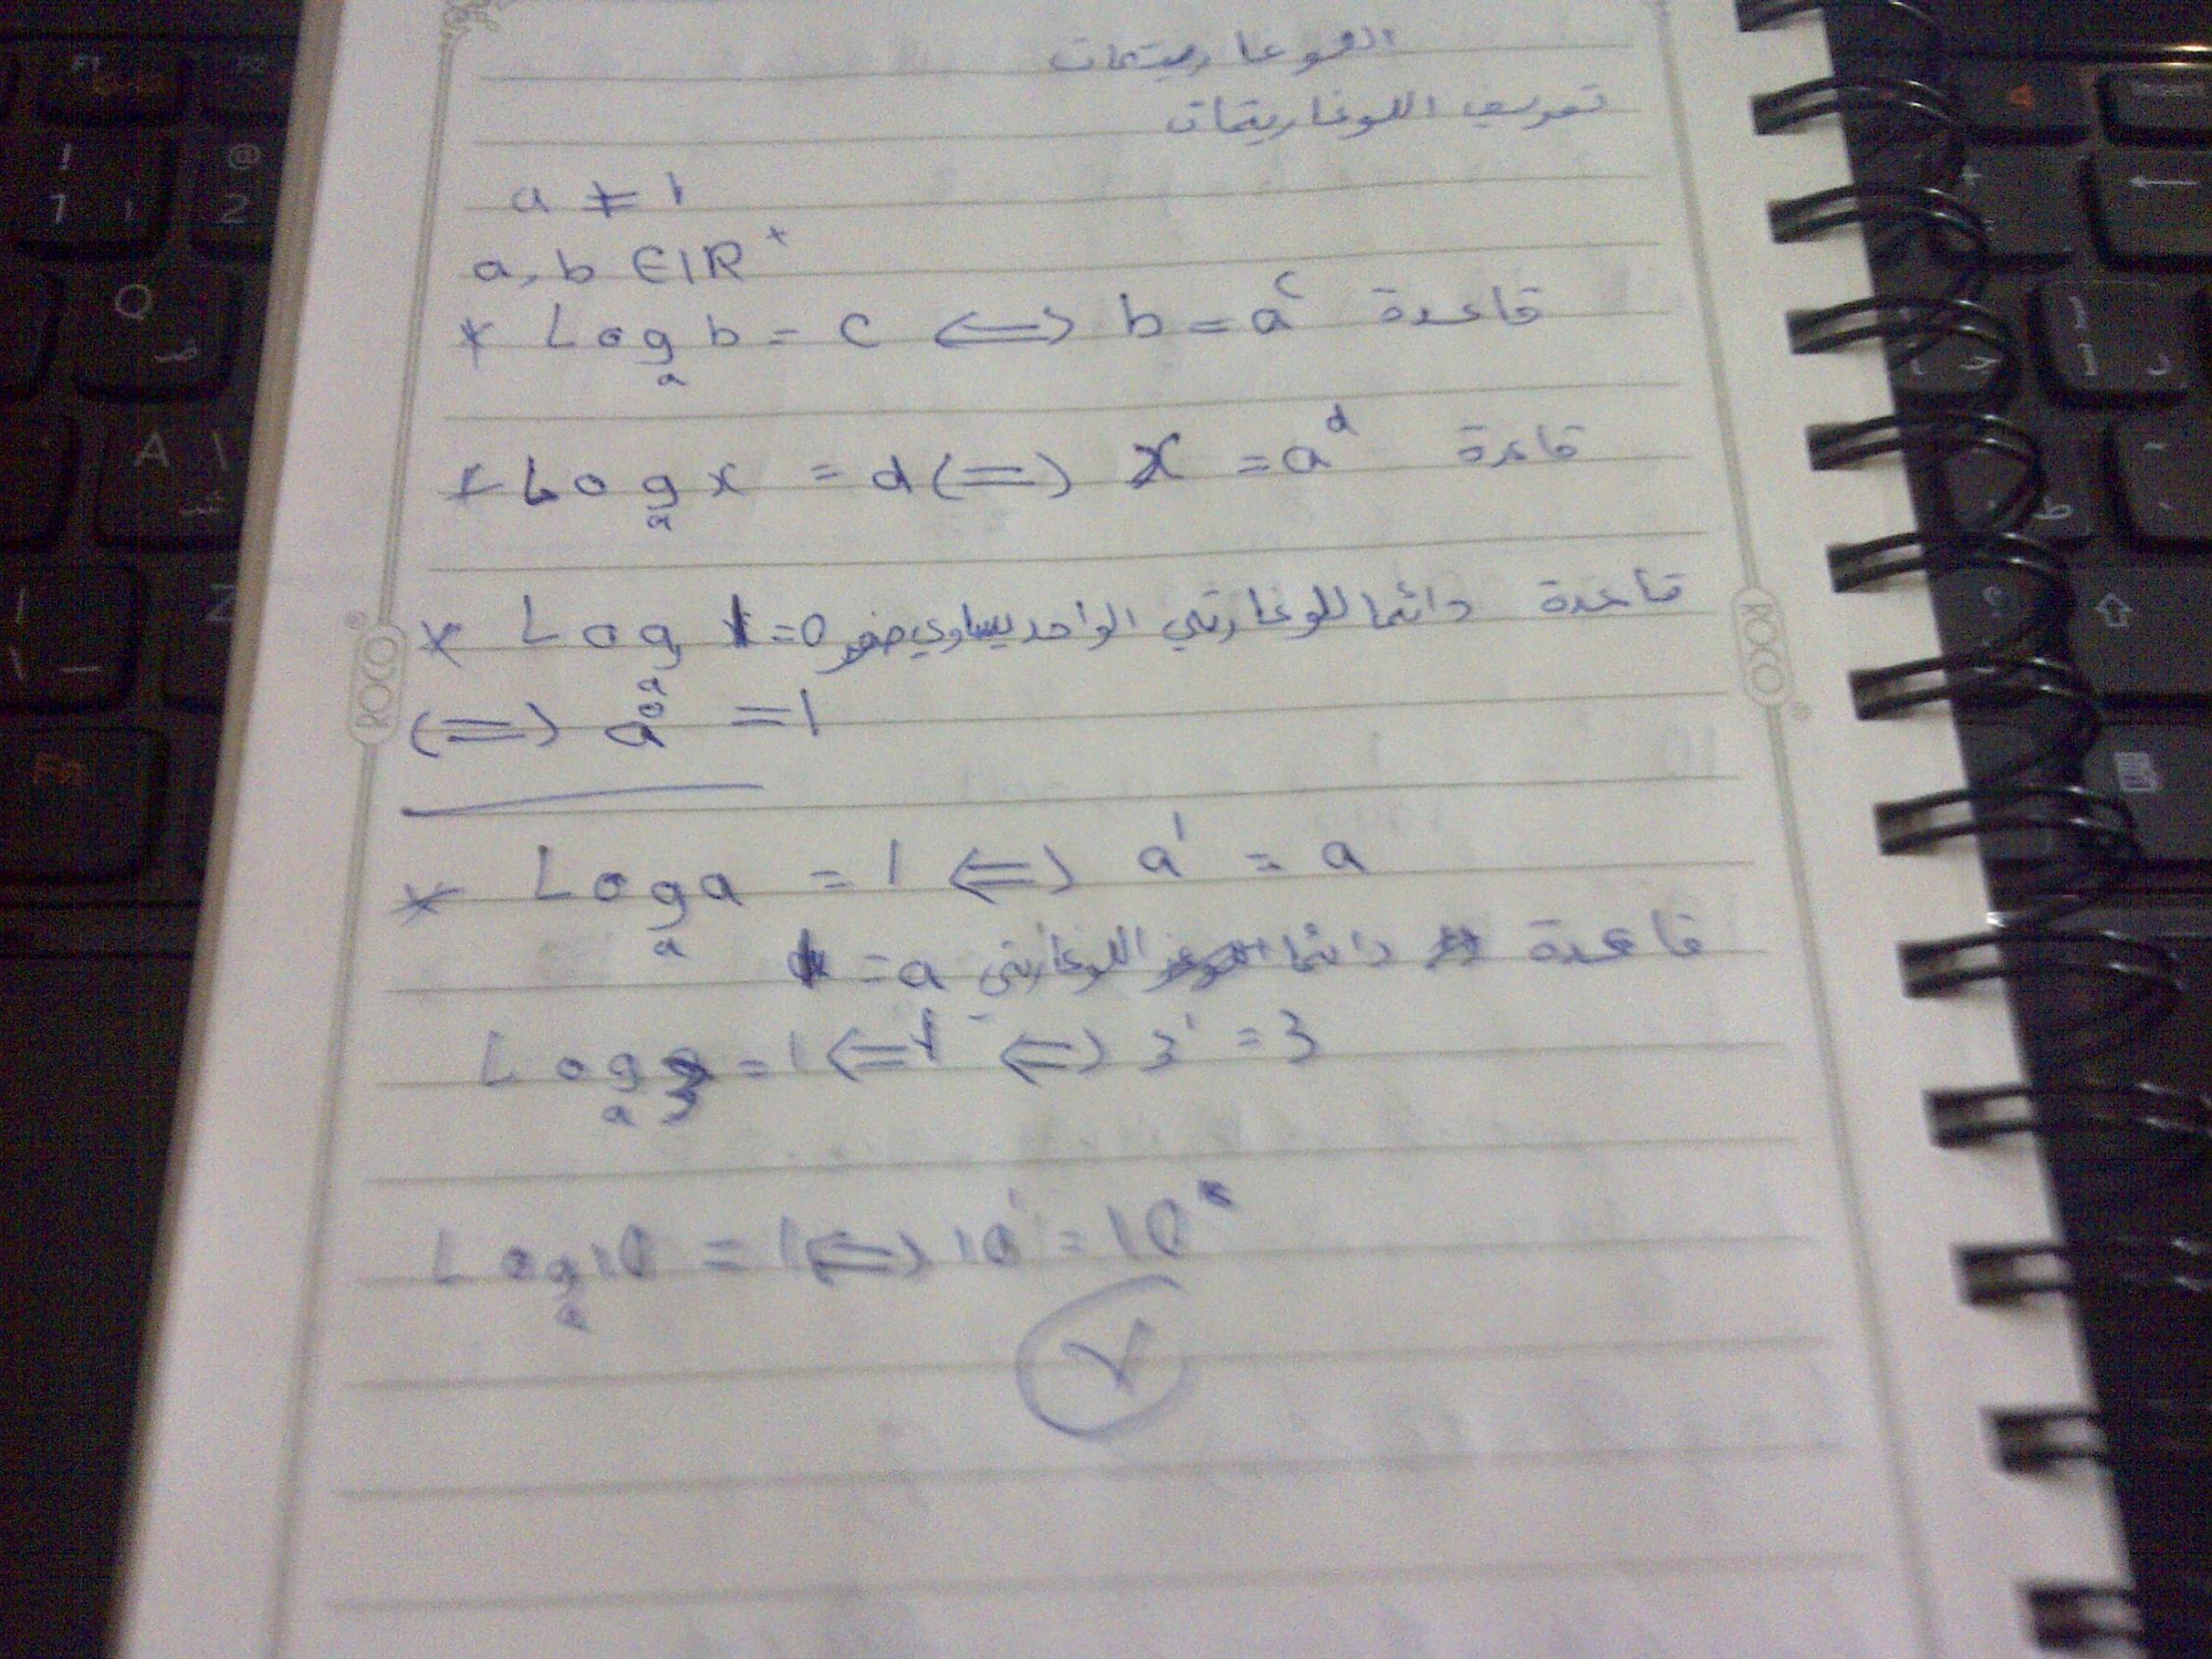 اللوغاريتمات
تعريف اللوغاريتمات
a ≠ 1
a, b ∈ IR⁺
* Log_a b = c <=> b = a^c قاعدة
* Log_a x = d <=> x = a^d قاعدة
* Log_a 1 = 0 قاعدة دائما للوغاريتمي الواحد يساوي صفر
<=> a^0 = 1
* Log_a a = 1 <=> a^1 = a
قاعدة دائما اللوغاريتمي a = 1
Log_a 3 = 1 <=> 3^1 = 3
Log_a 10 = 1 <=> 10^1 = 10
ROCO
ROCO